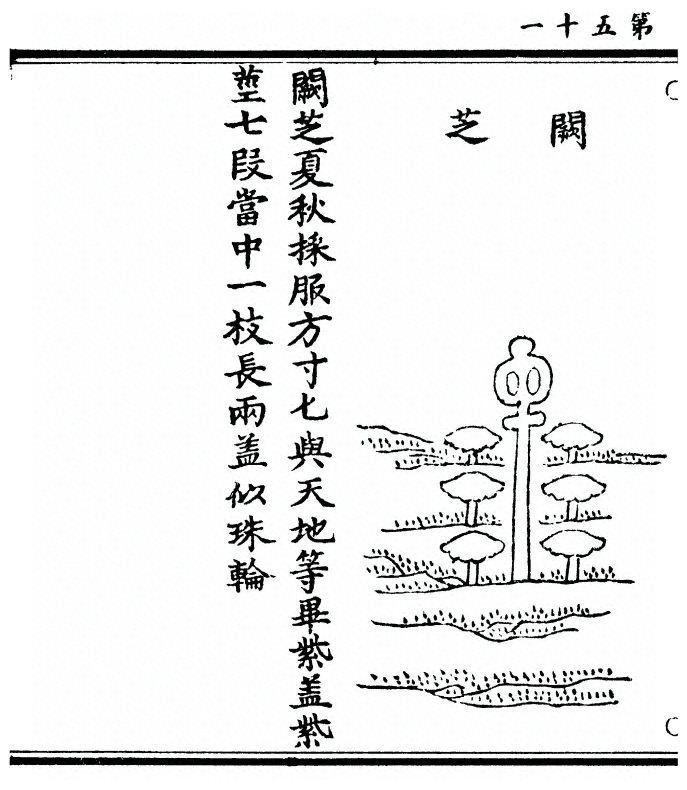 第五十一
闕芝
闕芝夏秋採服方寸七與天地等畢紫盖紫
莖七段當中一枝長兩盖似珠輪